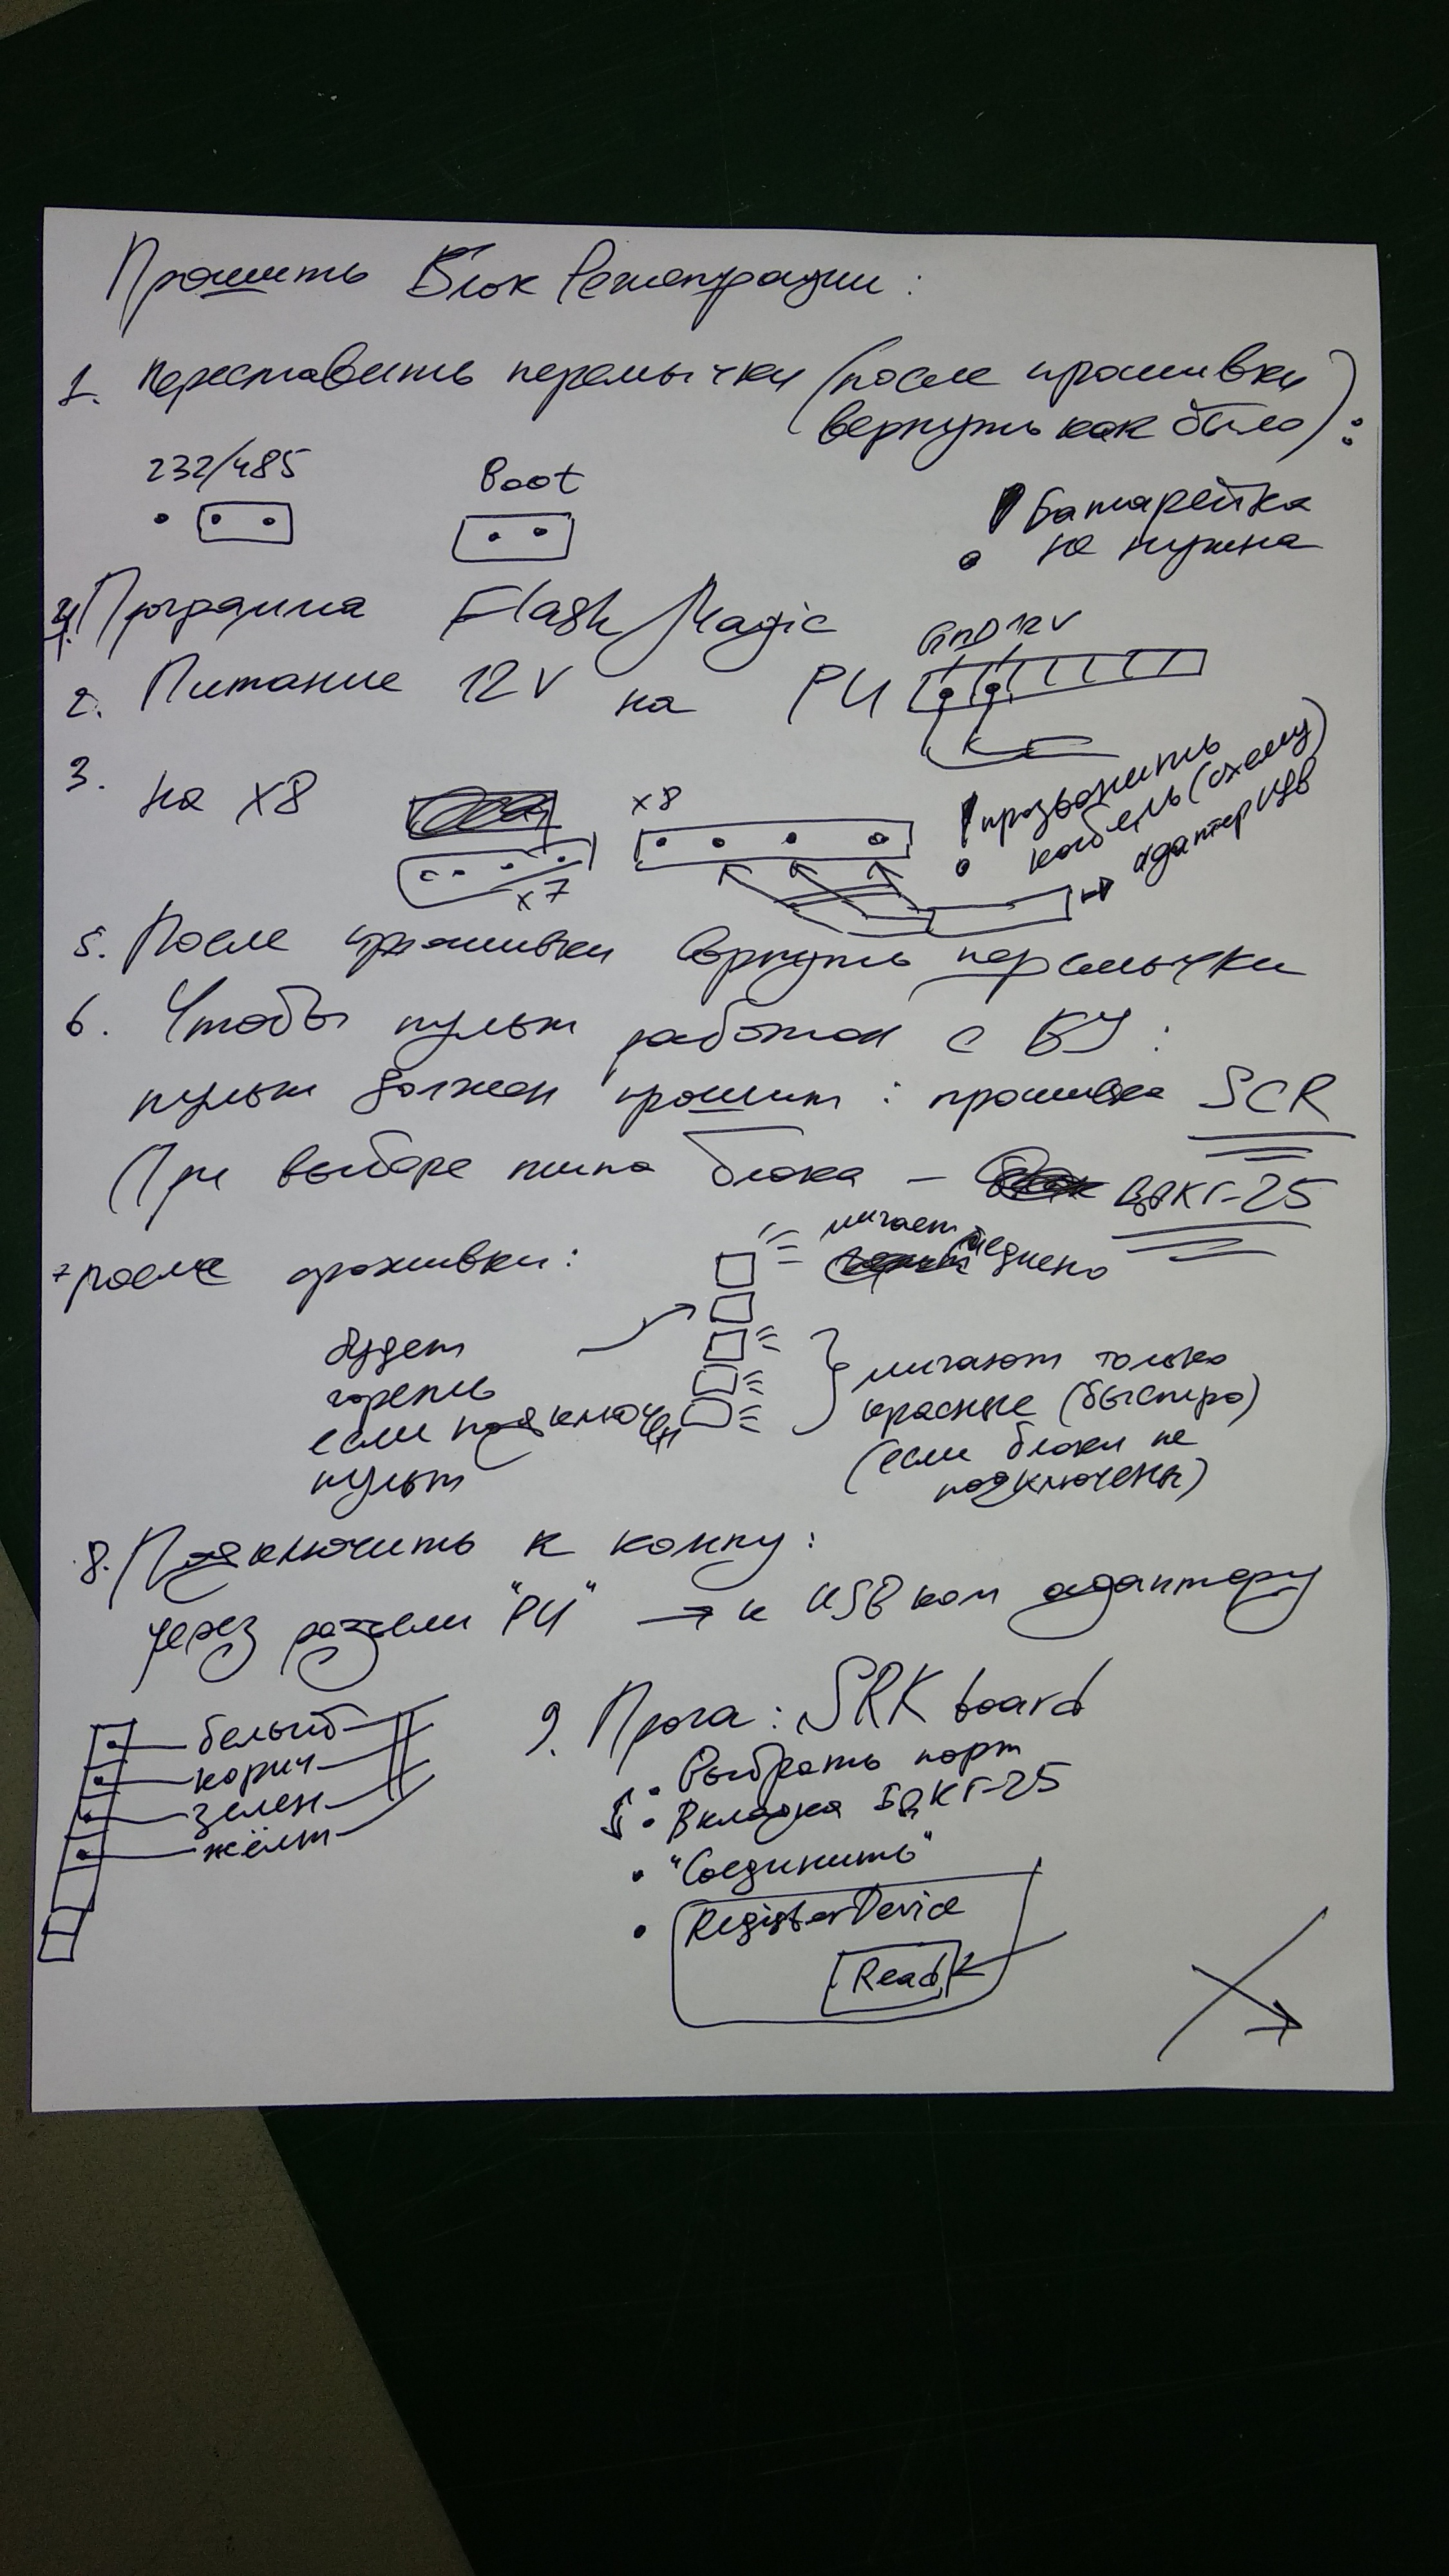 Прошить Блок Регистрации:
1. Переставить перемычки (после прошивки
вернуть как было):
232/485 Boot
! Батарейка
не нужна
4. Программа Flash Magic
GND 12V
2. Питание 12V на РЦ
3. на x8
x8
x7
! прозвонить
кабель (схему)
адаптер USB
5. После прошивки вернуть перемычки
6. Чтобы пульт работал с БУ:
пульт должен прошит: прошивка SCR
При выборе типа блока – БДКГ-25
7 после прошивки:
мигает
медленно
будет
гореть
если подключен
пульт
мигают только
красные (быстро)
(если блоки не
подключены)
8. Подключить к компу:
через разъем "РЦ" → к USB ком адаптеру
белый
корич
зелен
жёлт
9. Прога: SRK board
• Выбрать порт
• Вкладка БДКГ-25
• "Соединить"
• RegisterDevice
Read